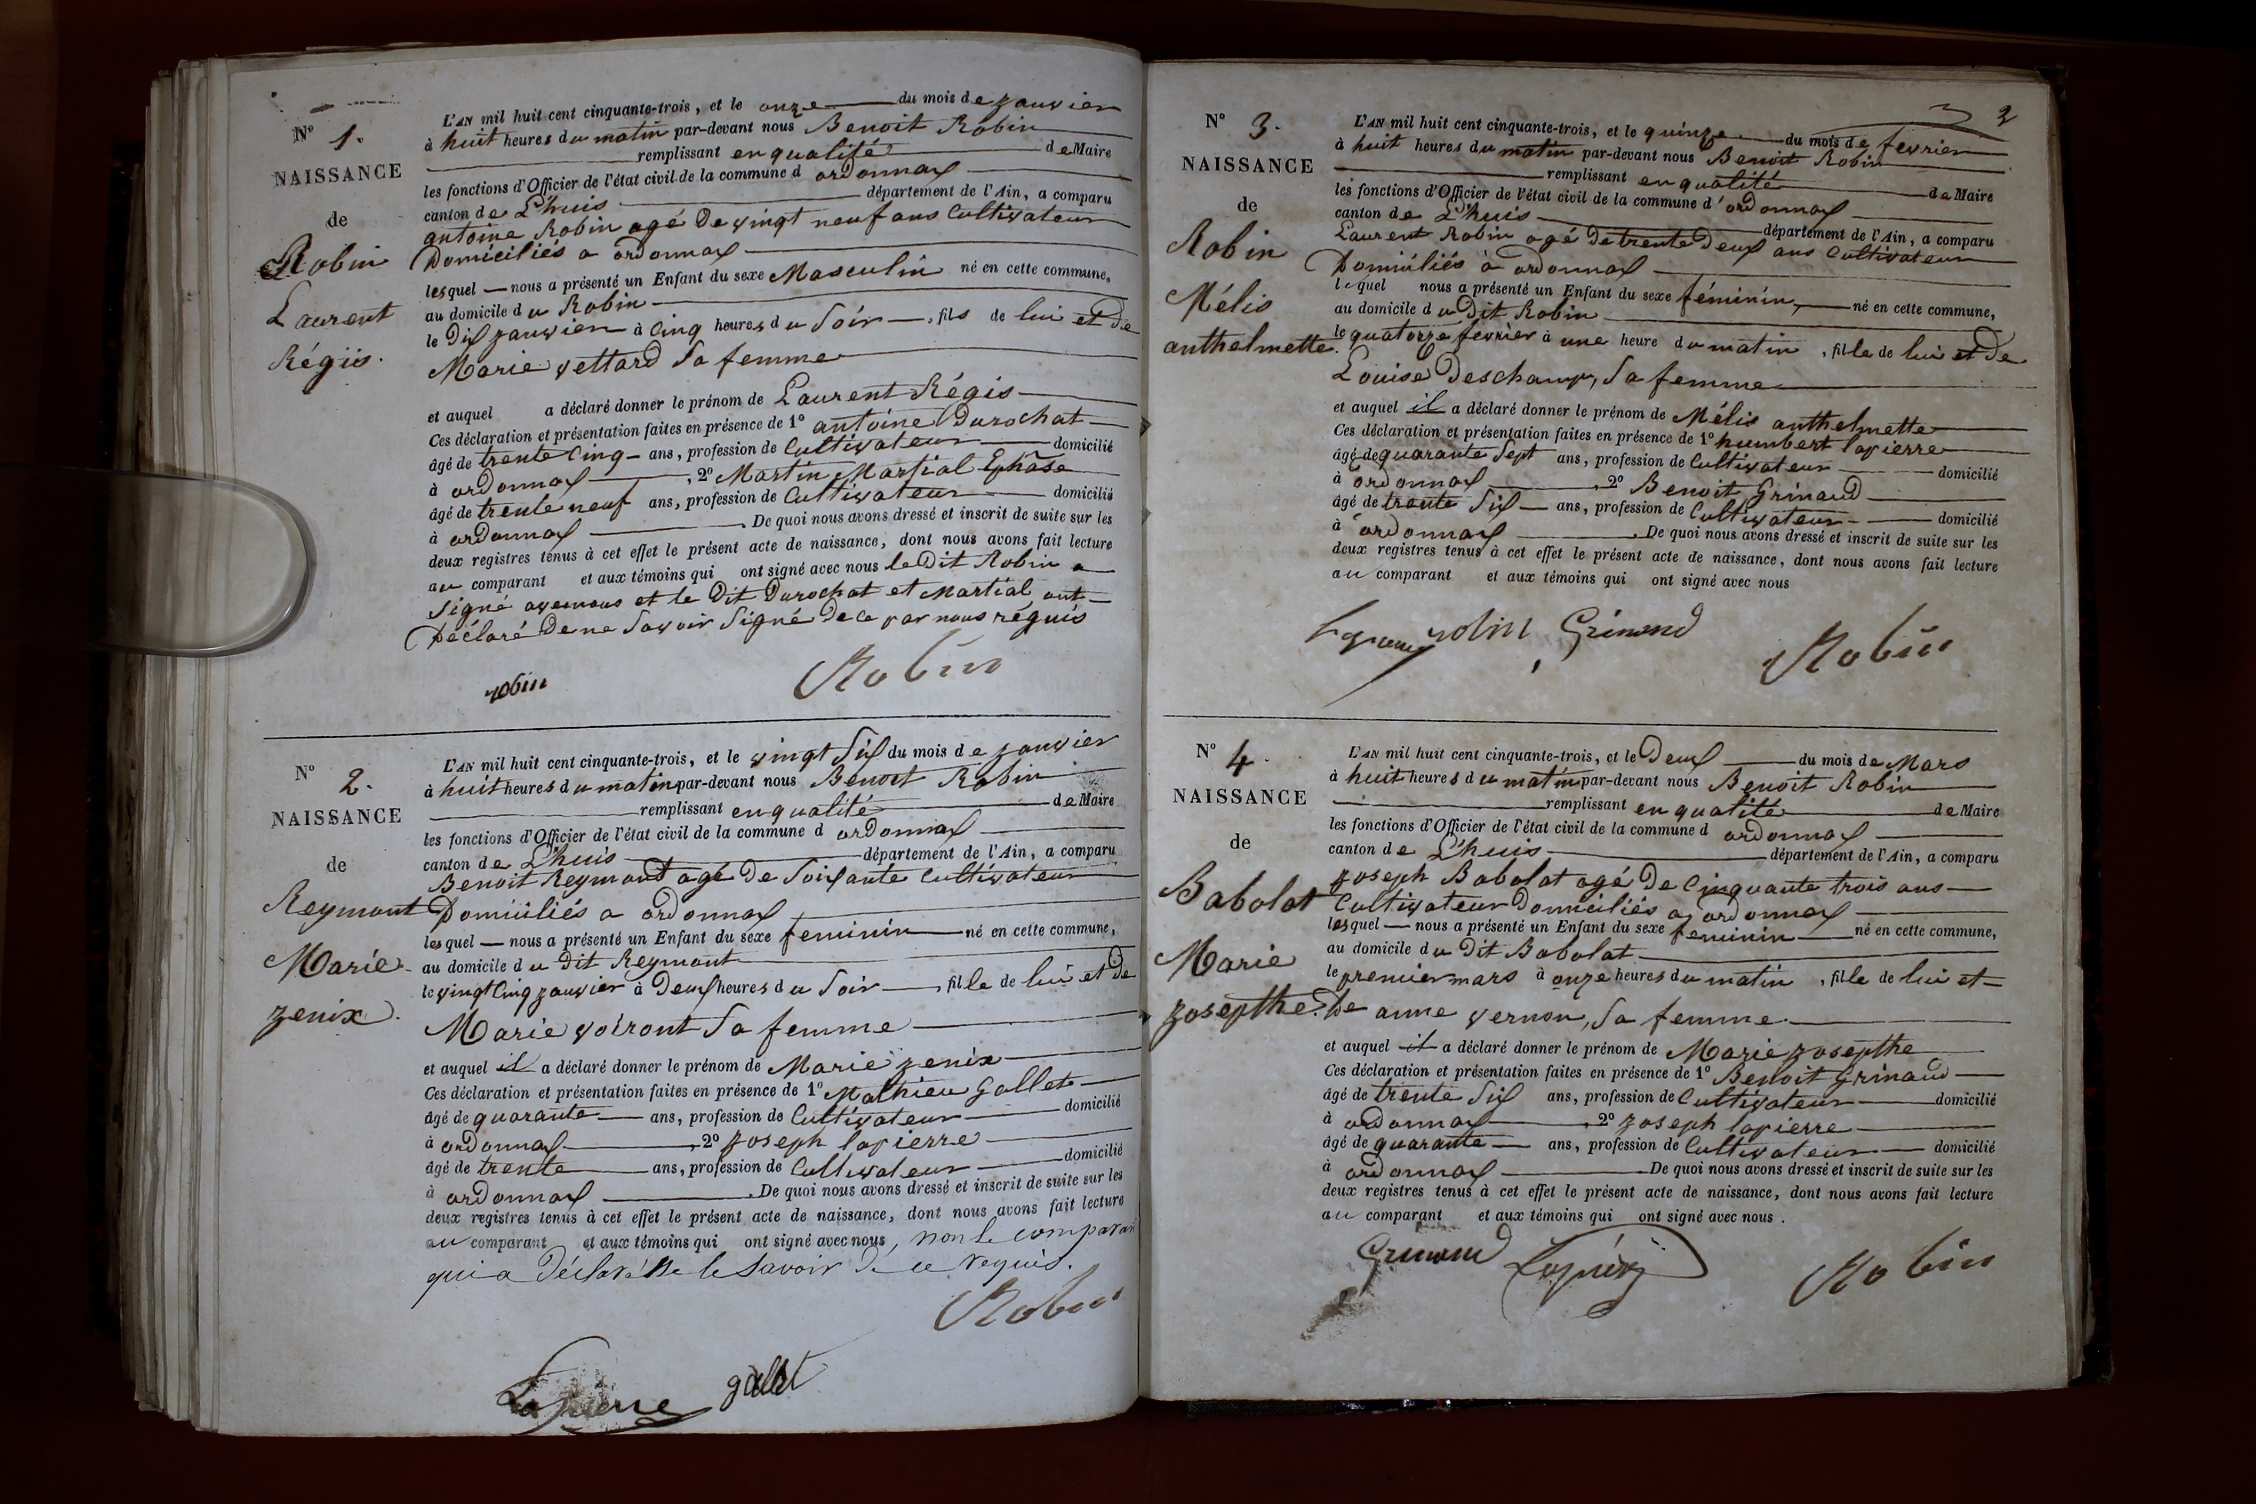 N° 1.
NAISSANCE
de
Robin
Laurent
Régis.
L'AN mil huit cent cinquante-trois, et le onze du mois de janvier
à huit heures du matin par-devant nous Benoit Robin
remplissant en qualité de Maire
les fonctions d'Officier de l'état civil de la commune d ordonnax
canton de L'huis département de l'Ain, a comparu
antoine Robin agé de vingt neuf ans Cultivateur
Domiciliés a ordonnax
lesquel nous a présenté un Enfant du sexe Masculin né en cette commune,
au domicile du Robin
le dix janvier à Cinq heures du Soir, fils de lui et de
Marie vettard Sa femme
et auquel a déclaré donner le prénom de Laurent Régis
Ces déclaration et présentation faites en présence de 1° antoine Durochat
âgé de trente Cinq ans, profession de Cultivateur domicilié
à ordonnax, 2° Martin Martial
âgé de trente neuf ans, profession de Cultivateur domicilié
à ordonnax. De quoi nous avons dressé et inscrit de suite sur les
deux registres tenus à cet effet le présent acte de naissance, dont nous avons fait lecture
au comparant et aux témoins qui ont signé avec nous le Dit Robin a
Signé avenous et le Dit Durochat et Martial ont
Déclaré de ne Savoir Signé de ce par nous réquis
robin Robin
N° 2.
NAISSANCE
de
Reymont
Marie
zenix.
L'AN mil huit cent cinquante-trois, et le vingt Six du mois de janvier
à huit heures du matin par-devant nous Benoit Robin
remplissant en qualité de Maire
les fonctions d'Officier de l'état civil de la commune d ordonnax
canton de L'huis département de l'Ain, a comparu
Benoit Reymont agé de Soixante Cultivateur
Domiciliés a ordonnax
lesquel nous a présenté un Enfant du sexe feminin né en cette commune,
au domicile du dit Reymont
le vingt Cinq janvier à Deux heures du Soir, fille de lui et de
Marie voiront Sa femme
et auquel il a déclaré donner le prénom de Marie zenix
Ces déclaration et présentation faites en présence de 1° Mathieu Gallet
âgé de quarante ans, profession de Cultivateur domicilié
à ordonnax, 2° Joseph lapierre
âgé de trente ans, profession de Cultivateur domicilié
à ordonnax. De quoi nous avons dressé et inscrit de suite sur les
deux registres tenus à cet effet le présent acte de naissance, dont nous avons fait lecture
au comparant et aux témoins qui ont signé avec nous, non le comparant
qui a déclaré ne le Savoir de ce requis.
Robin
Lapierre gallet
2
N° 3.
NAISSANCE
de
Robin
Mélis
anthelmette.
L'AN mil huit cent cinquante-trois, et le quinze du mois de fevrier
à huit heures du matin par-devant nous Benoit Robin
remplissant en qualité de Maire
les fonctions d'Officier de l'état civil de la commune d'ordonnax
canton de L'huis département de l'Ain, a comparu
Laurent Robin agé de trente deux ans Cultivateur
Domiciliés à ordonnax
lequel nous a présenté un Enfant du sexe féminin, né en cette commune,
au domicile du Dit Robin
le quatorze fevrier à une heure du matin, fille de lui et de
Louise Deschamp, Sa femme
et auquel il a déclaré donner le prénom de Mélis anthelmette
Ces déclaration et présentation faites en présence de 1° humbert lapierre
âgé de quarante Sept ans, profession de Cultivateur domicilié
à ordonnax, 2° Benoit Grinaud
âgé de trente Six ans, profession de Cultivateur domicilié
à ordonnax. De quoi nous avons dressé et inscrit de suite sur les
deux registres tenus à cet effet le présent acte de naissance, dont nous avons fait lecture
au comparant et aux témoins qui ont signé avec nous
robin Grinand Robin
N° 4.
NAISSANCE
de
Babolat
Marie
Josepthe.
L'AN mil huit cent cinquante-trois, et le Deux du mois de Mars
à huit heures du matin par-devant nous Benoit Robin
remplissant en qualité de Maire
les fonctions d'Officier de l'état civil de la commune d ordonnax
canton de L'huis département de l'Ain, a comparu
Joseph Babolat agé de Cinquante trois ans
Cultivateur Domiciliés a ordonnax
lesquel nous a présenté un Enfant du sexe feminin né en cette commune,
au domicile du Dit Babolat
le premier mars à onze heures du matin, fille de lui et
de anne vernon, Sa femme.
et auquel il a déclaré donner le prénom de Marie Josepthe
Ces déclaration et présentation faites en présence de 1° Benoit Grinaud
âgé de trente Six ans, profession de Cultivateur domicilié
à ordonnax, 2° Joseph lapierre
âgé de quarante ans, profession de Cultivateur domicilié
à ordonnax. De quoi nous avons dressé et inscrit de suite sur les
deux registres tenus à cet effet le présent acte de naissance, dont nous avons fait lecture
au comparant et aux témoins qui ont signé avec nous.
Grinand Robin